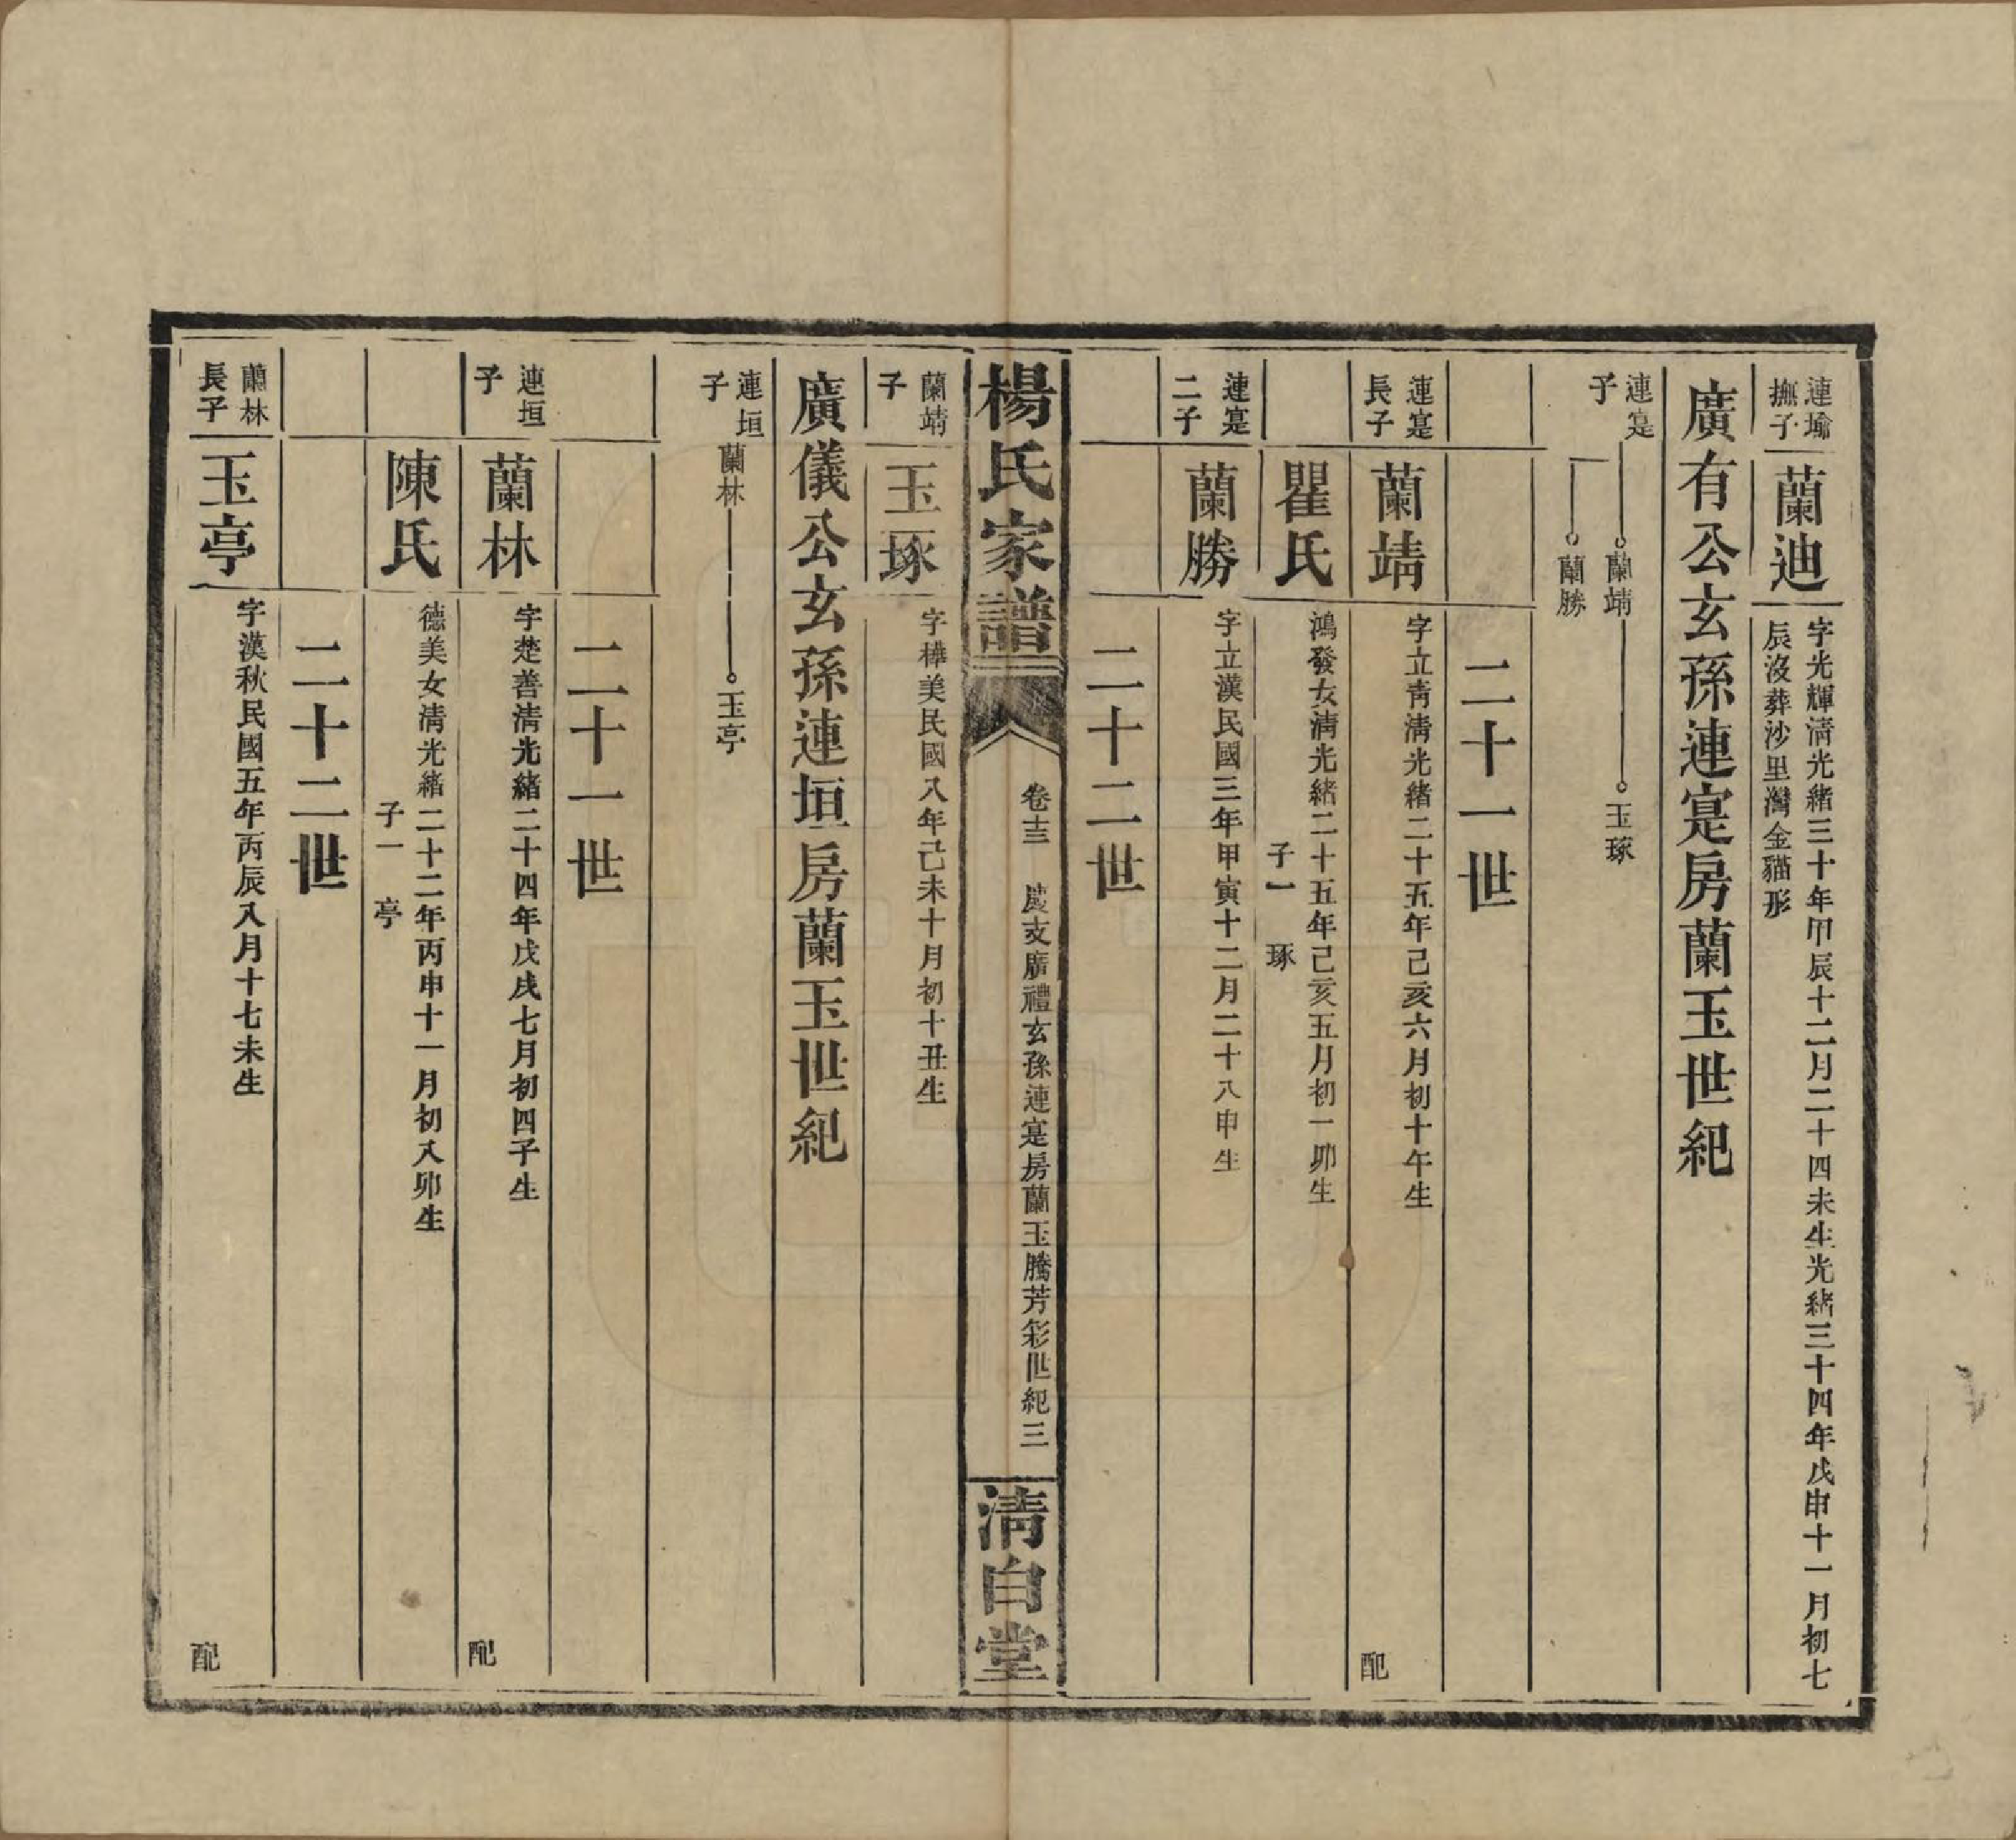 連瑜
撫子
蘭迪
字光輝清光緒三十年甲辰十二月二十四未生光緒三十四年戊申十一月初七
辰沒葬沙里灣金貓形
廣有公玄孫連寔房蘭玉世紀
連寔
子
蘭靖
玉琢
蘭勝
二十一世
連寔
長子
蘭靖
字立靑清光緒二十五年己亥六月初十午生
配
瞿氏
鴻發女清光緒二十五年己亥五月初一卯生
子一 琢
連寔
二子
蘭勝
字立漢民國三年甲寅十二月二十八申生
二十二世
楊氏家譜
卷十三 慶支廣禮玄孫連寔房蘭玉騰芳彩世紀三
清白堂
蘭靖
子
玉琢
字樺美民國八年己未十月初十丑生
廣儀公玄孫連垣房蘭玉世紀
連垣
子
蘭林
玉亭
二十一世
連垣
子
蘭林
字楚善清光緒二十四年戊戌七月初四子生
配
陳氏
德美女清光緒二十二年丙申十一月初八卯生
子一 亭
二十二世
蘭林
長子
玉亭
字漢秋民國五年丙辰八月十七未生
配